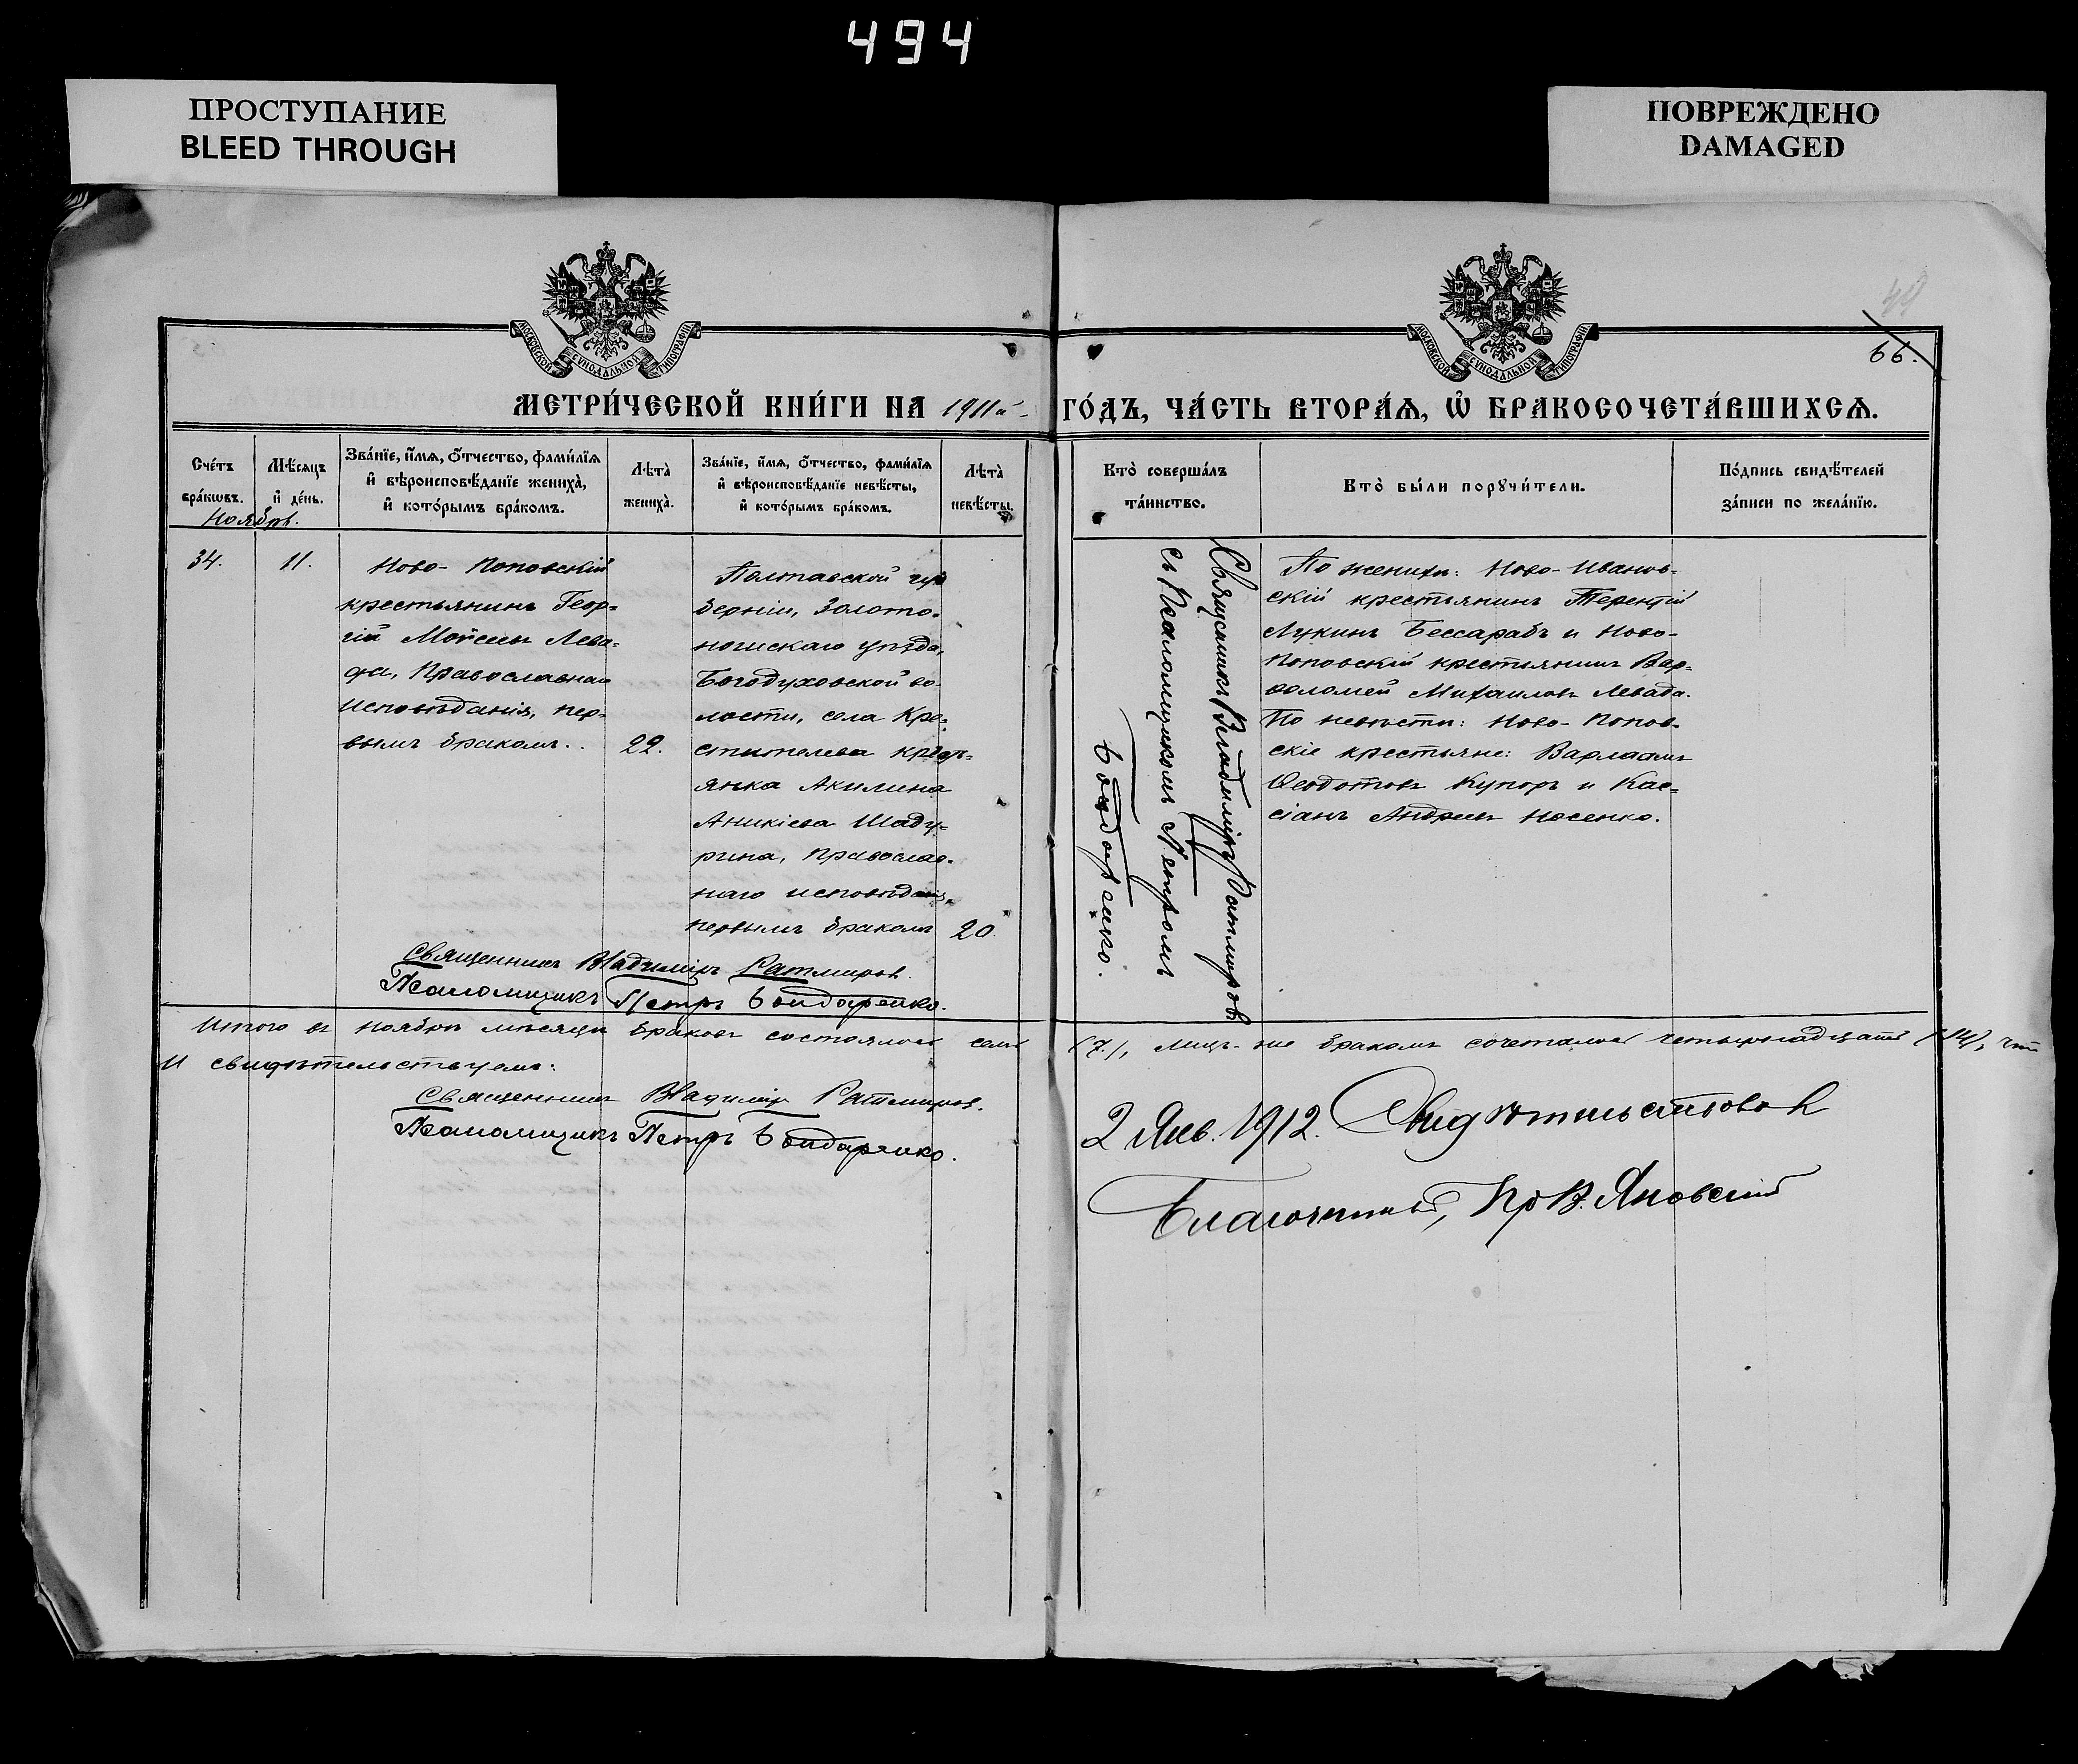 494
ПРОСТУПАНИЕ
BLEED THROUGH
ПОВРЕЖДЕНО
DAMAGED
МОСКОВСКОЙ СУНОДАЛЬНОЙ ТИПОГРАФІИ
МОСКОВСКОЙ СУНОДАЛЬНОЙ ТИПОГРАФІИ
66.
МЕТРИ́ЧЕСКОЙ КНИ́ГИ НА 1911й
ГО́ДЪ, ЧА́СТЬ ВТОРА́Ѧ, Ѡ҆ БРАКОСОЧЕТА́ВШИХСѦ.
Сче́тъ
бра́кѡвъ.
Мѣ́сѧцъ
и҆ де́нь.
Зва́нїе, и҆́мѧ, ѻ҆́тчество, фами́лїѧ
и҆ вѣроисповѣ́данїе жениха̀,
и҆ кото́рымъ бра́комъ.
Лѣта̀
жениха̀.
Зва́нїе, и҆́мѧ, ѻ҆́тчество, фами́лїѧ
и҆ вѣроисповѣ́данїе невѣ́сты,
и҆ кото́рымъ бра́комъ.
Лѣта̀
невѣ́сты.
Кто̀ соверша́лъ
та́инство.
Кто̀ бы́ли порꙋчи́тели.
По́дпись свидѣ́телей
за́писи по жела́нїю.
Ноябрь.
34.
11.
Ново-Поповскій
крестьянинъ Геор=
гій Моѵсеевъ Лева=
да, Православнаго
исповѣданія, пер=
вымъ бракомъ.
22.
Полтавской гу
берніи, Золото=
ношскаго уѣзда,
Богодуховской во
лости, села Кре=
стителева крестъ=
янка Акилина
Аникіева Шаду=
рина, Православ=
наго исповѣданія,
первымъ бракомъ
20.
Священникъ Владиміръ Ратмировъ
съ Псаломщикомъ Петромъ
Бондаренко.
По женихѣ: Ново-Иванов=
скій крестьянинъ Терентій
Лукинъ Бессарабъ и Ново-
Поповскій крестьянинъ Вар=
ѳоломей Михаиловъ Левада.
По невѣстѣ: Ново-Попов=
скіе крестьяне: Варлаамъ
Ѳеодотовъ Купоръ и Кас=
сіанъ Андреевъ Носенко.
Священникъ Владиміръ Ратмировъ.
Псаломщикъ Петръ Бондаренко.
Итого въ ноябрѣ мѣсяцѣ браковъ состоялось семь (7), лицъ-же бракомъ сочеталось четырнадцать (14), что
и свидѣтельствуемъ:
Священникъ Владиміръ Ратмировъ.
Псаломщикъ Петръ Бондаренко.
2 Янв. 1912. Свидѣтельствовалъ
Благочинный, Пр В. Яновскій